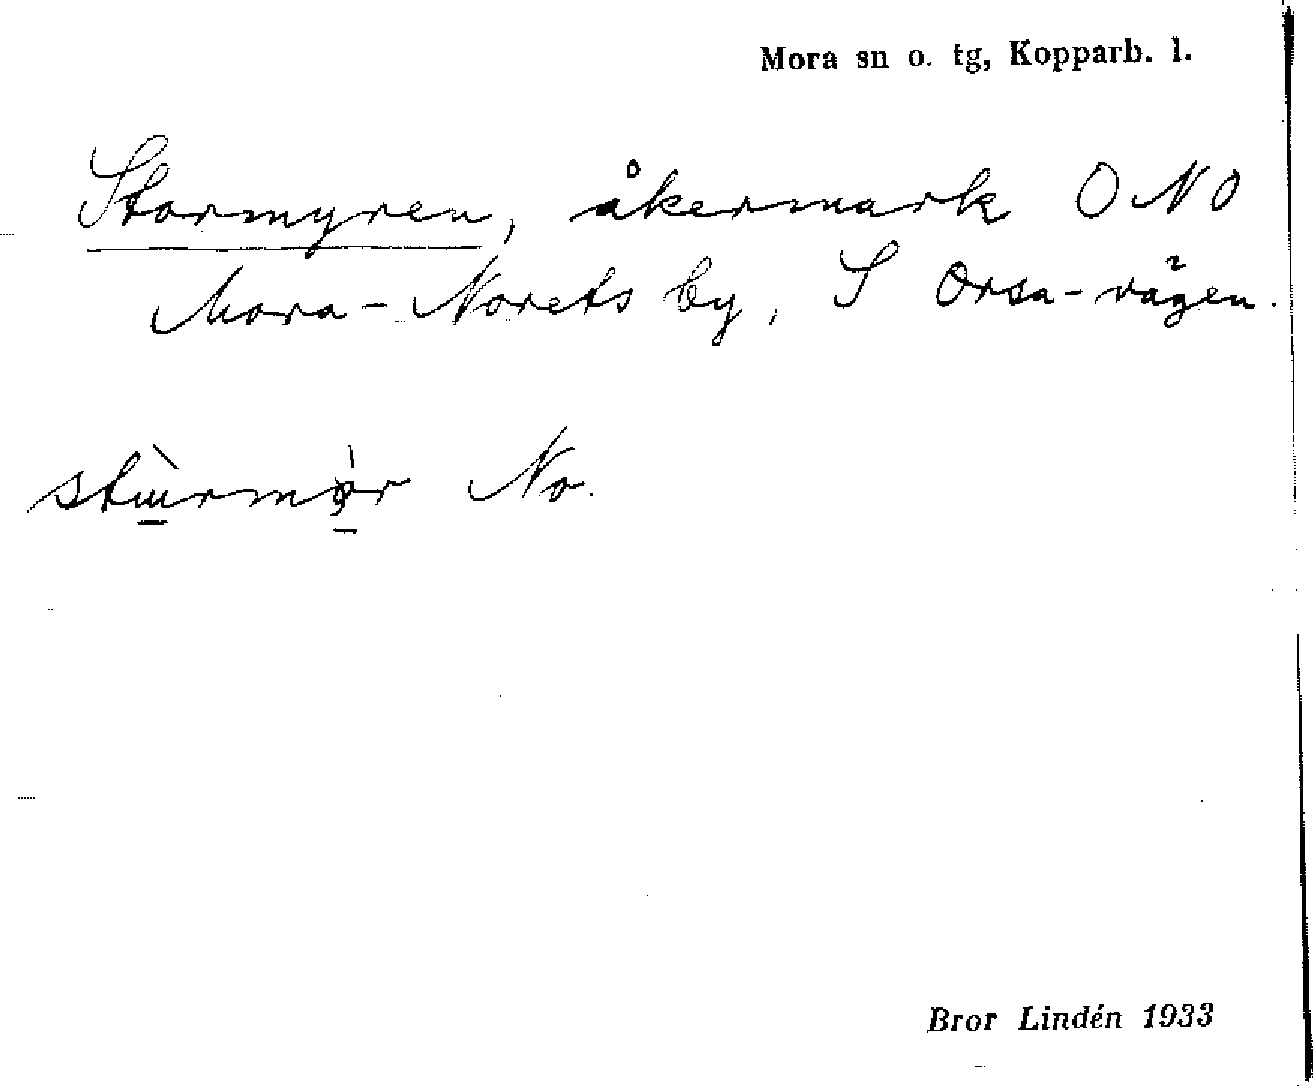 Mora sn o. tg, Kopparb. l.
Stormyren, åkermark ONO
Mora-Norets by, S Orsa-vägen.
No.
Bror Lindén 1933